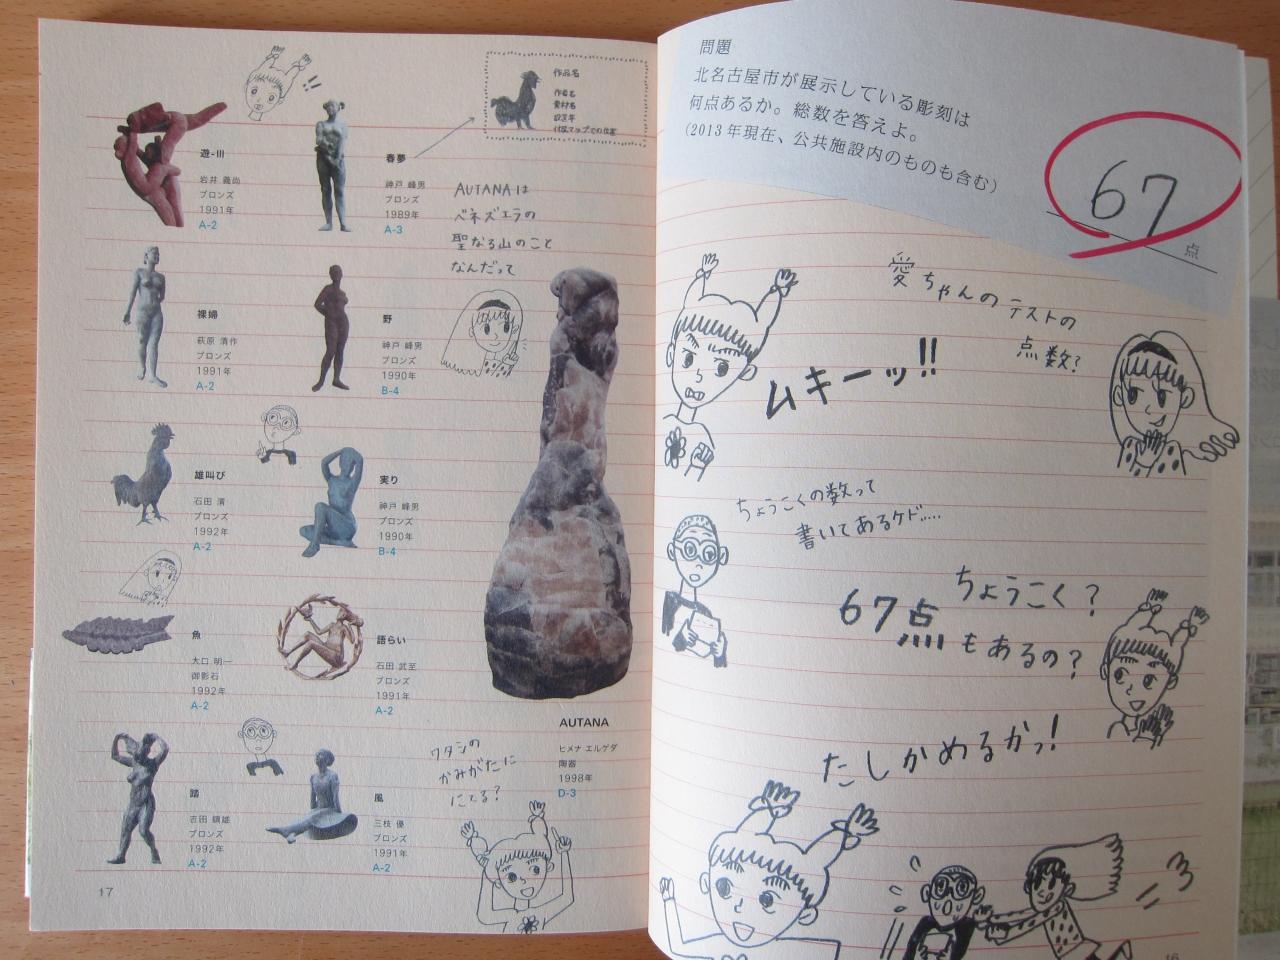 作品名
作者名
素材名
設置年
付属マップでの位置
遊-III
岩井 義尚
ブロンズ
1991年
A-2
春夢
神戸 峰男
ブロンズ
1989年
A-3
AUTANAは
ベネズエラの
聖なる山のこと
なんだって
裸婦
萩原 清作
ブロンズ
1991年
A-2
野
神戸 峰男
ブロンズ
1990年
B-4
雄叫び
石田 清
ブロンズ
1992年
A-2
実り
神戸 峰男
ブロンズ
1990年
B-4
魚
大口 明一
御影石
1992年
A-2
語らい
石田 武至
ブロンズ
1991年
A-2
踏
吉田 鎮雄
ブロンズ
1992年
A-2
風
三枝 優
ブロンズ
1991年
A-2
ワタシの
かみがたに
にてる?
AUTANA
ヒメナ エルゲダ
陶器
1998年
D-3
17
問題
北名古屋市が展示している彫刻は
何点あるか。総数を答えよ。
(2013年現在、公共施設内のものも含む)
67
点
愛ちゃんのテストの
点数?
ムキーッ!!
ちょうこくの数って
書いてあるケド……
ちょうこく?
67点もあるの?
たしかめるかっ!
16